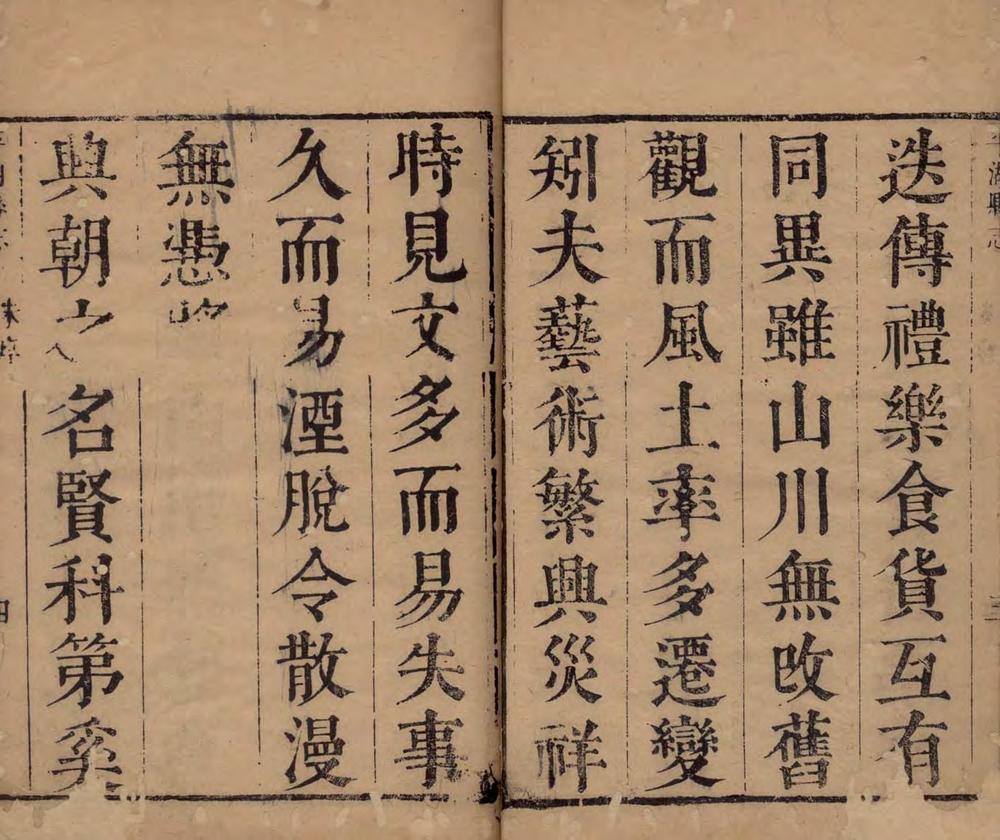 湖縣志
迭傳禮樂食貨互有
同異雖山川無改舊
觀而風土率多遷變
矧夫藝術繁興災祥
時見文多而易失事
久而易湮脫令散漫
無憑
典朝 名賢科第奕
朱序
四